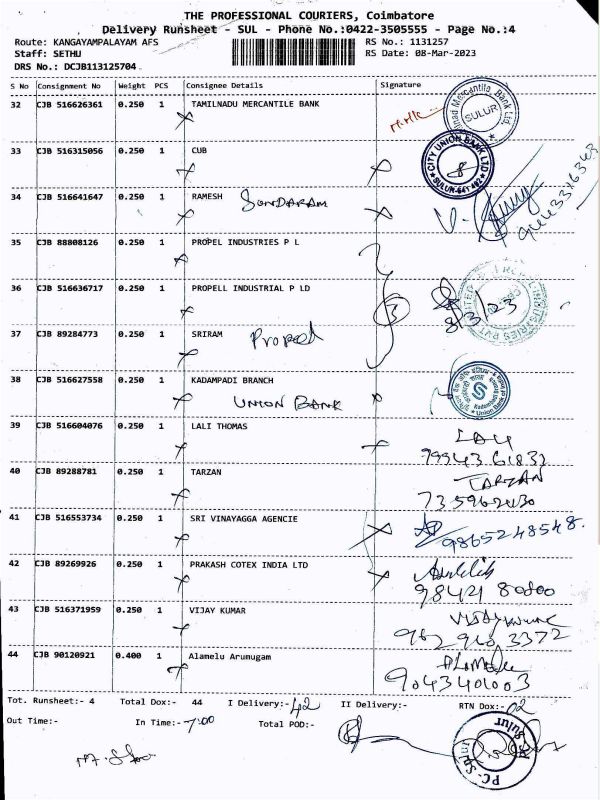 THE PROFESSIONAL COURIERS, Coimbatore
Delivery Runsheet - SUL - Phone No.:0422-3505555 - Page No.:4
Route: KANGAYAMPALAYAM AFS RS No.: 1131257
Staff: SETHU RS Date: 08-Mar-2023
DRS No.: DCJB113125704
S No Consignment No Weight PCS Consignee Details Signature
32 CJB 516626361 0.250 1 TAMILNADU MERCANTILE BANK
SULUR
33 CJB 516315056 0.250 1 CUB
CITY UNION BANK LTD
SULUR-641 402
34 CJB 516641647 0.250 1 RAMESH SUNDARAM
35 CJB 88808126 0.250 1 PROPEL INDUSTRIES P L
36 CJB 516636717 0.250 1 PROPELL INDUSTRIAL P LD
3 8/3/23
37 CJB 89284773 0.250 1 SRIRAM Propel
38 CJB 516627558 0.250 1 KADAMPADI BRANCH
UNION BANK
39 CJB 516604076 0.250 1 LALI THOMAS
40 CJB 89288781 0.250 1 TARZAN
TARZAN
41 CJB 516553734 0.250 1 SRI VINAYAGGA AGENCIE
9865248548
42 CJB 89269926 0.250 1 PRAKASH COTEX INDIA LTD
98421 80800
43 CJB 516371959 0.250 1 VIJAY KUMAR
44 CJB 90120921 0.400 1 Alamelu Arumugam
9043401003
Tot. Runsheet:- 4 Total Dox:- 44 I Delivery:- 42 II Delivery:- RTN Dox:- 02
Out Time:- In Time:- 7:00 Total POD:-
PC - Sulur